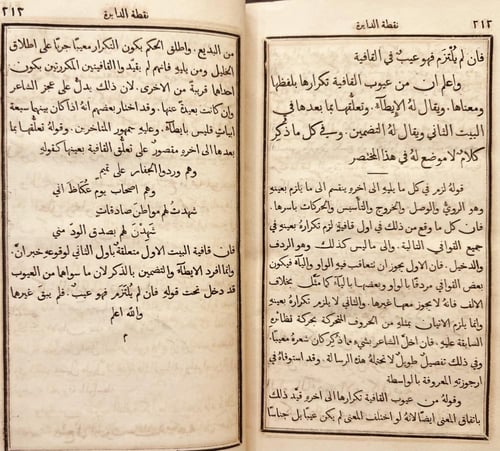 ٢١٢ نقطة الدايرة
فان لم يُلتزَم فهو عيبٌ في القافية
واعلم ان من عيوب القافية تكرارها بلفظها
ومعناها. ويقال لهُ الإيطآءُ. وتعلُّقها بما بعدها في
البيت الثاني ويقال لهُ التضمين. وفي كل ما ذُكِر
كلامٌ لا موضع لهُ في هذا المختصر
قولهُ لزم في كل ما يليهِ الى اخرهِ ينقسم الى ما يلزم بعينهِ
وهو الرويُّ والوصل والخروج والتأسيس والحركات باسرها.
فان كل ما وقع من ذلك في اول قافية لزم تكرارهُ بعينهِ في
جميع القوافي التالية. والى ما ليس كذلك وهو الردف
والدخيل. فان الاول يجوز ان تتعاقب فيهِ الواو والياءُ فيكون
بعض القوافي مردفًا بالواو وبعضها بالياءِ كما مرَّ. بخلاف
الالف فانهُ لا يجوز معها غيرها. والثاني لا يلزم تكرارهُ بعينهِ
وانما يلزم الاتيان بمثلهِ من الحروف المتحركة بحركة نظائرهِ
السابقة عليهِ. فان اخلَّ الشاعر بشيءٍ مما ذُكر كان شعرهُ معيبًا.
وفي ذلك تفصيل طويلٌ لا تحتملهُ هذه الرسالة. وقد استوفاهُ في
ارجوزتهِ المعروفة بالواسطة
وقولهُ من عيوب القافية تكرارها الى اخرهِ قيَّد ذلك
باتفاق المعنى ايضًا لانهُ لو اختلف المعنى لم يكن عيبًا بل جناسًا
نقطة الدايرة ٢١٣
من البديع. واطلق الحكم بكون التكرار معيبًا جريًا على اطلاق
الخليل ومن يليهِ فانهم لم يقيّدوا القافيتين المكررتين بكون
احداها قريبةً من الاخرى. لان ذلك يدلُّ على عجز الشاعر
وان كانت بعيدةً عنها. وقد اختار بعضهم انهُ اذا كان بينها سبعة
ابيات فليس بايطآءٍ. وعليهِ جمهور المتأخرين. وقولهُ تعلُّقها بما
بعدها الى اخرهِ مقصورٌ على تعلّق القافية بعينها كقولهِ
وهم وردوا الجفار على تميم
وهم اصحاب يوم عُكاظ اني
شهدتُ لهم مواطنَ صادقاتٍ
شهِدْنَ لهم بصدق الود مني
فان قافية البيت الاول متعلقةٌ باول الثاني لوقوعهِ خبرانَّ.
وانما افرد الايطآءَ والتضمين بالذكر لان ما سواهما من العيوب
قد دخل تحت قولهِ فان لم يُلتزَم فهو عيبٌ. فلم يبقَ غيرها
والله اعلم
٢